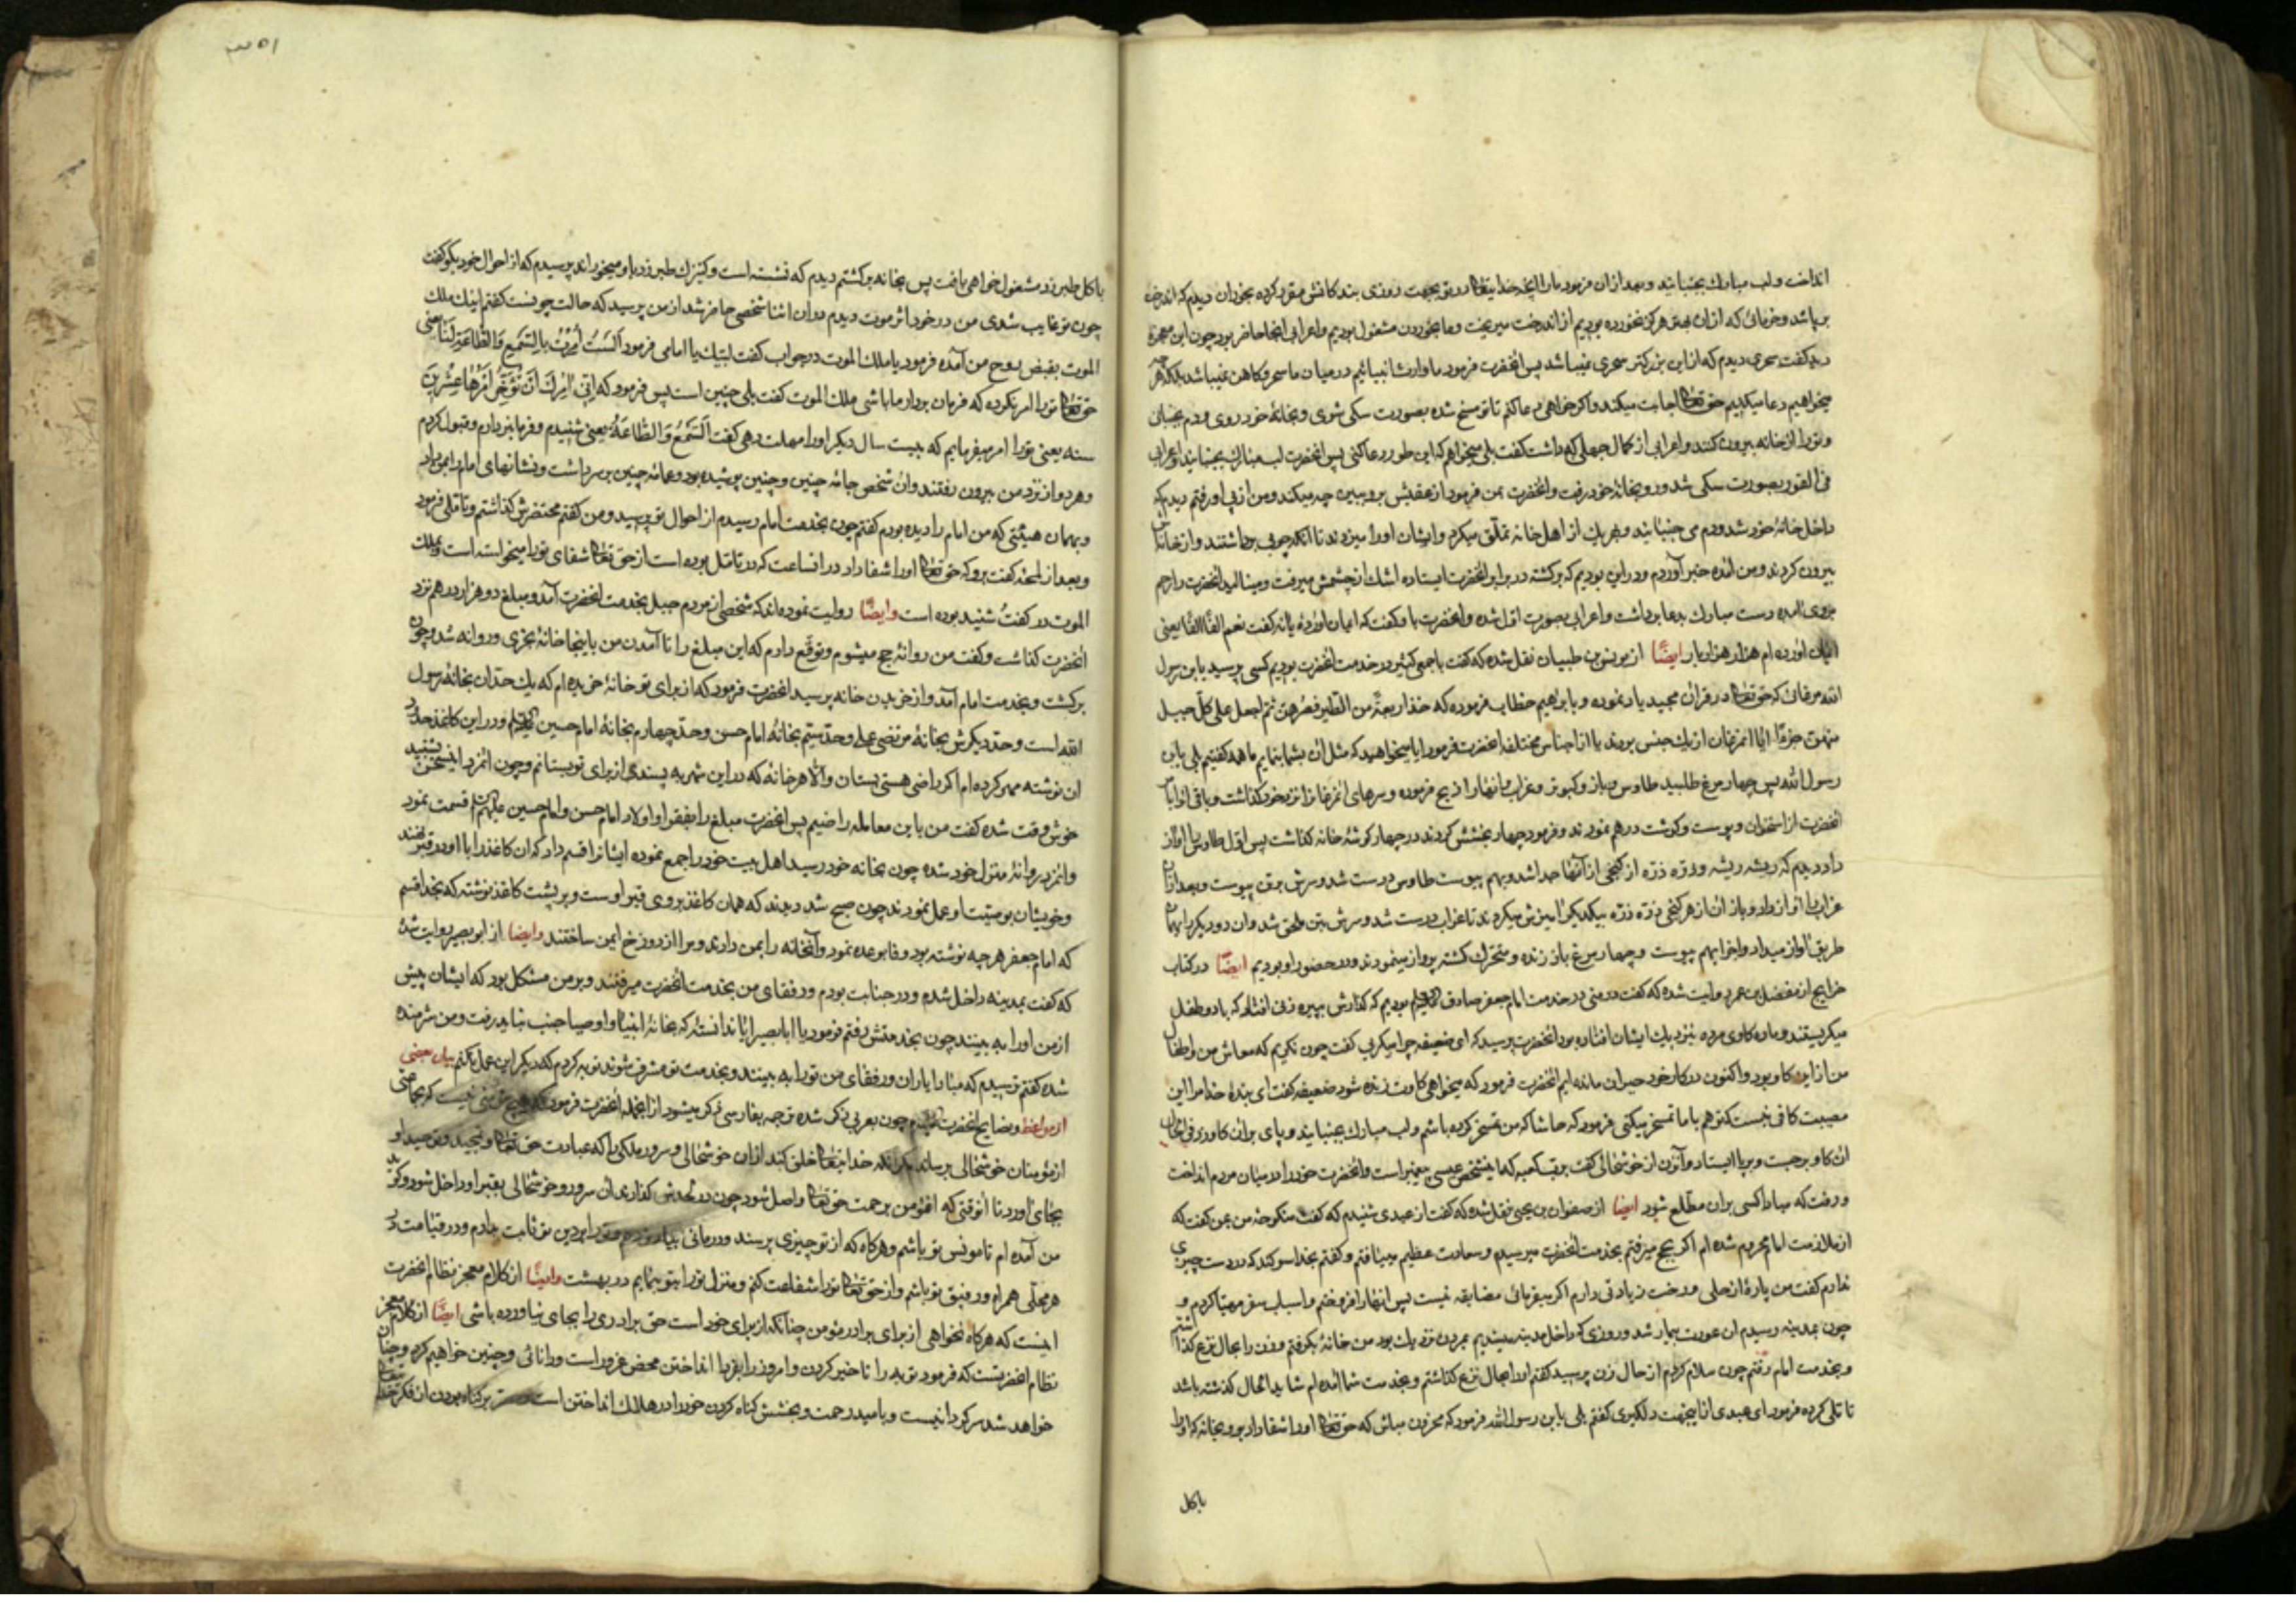 انداخت ولب مبارك بجنبانید وبعد ازان فرمود مارا ازانچه خدایتعالی در تو بجهت روزی بندكانش مقرر كرده بخوران دیدم كه اندرخت
برپا شد وخرمائی كه ازان بهتر هركز نخورده بودیم از اندرخت میریخت وما بخوردن مشغول بودیم واعرابی انجا حاضر بود چون این معجزه
دید كفت سحری دیدم كه ازاین بزركتر سحری نمیباشد پس انحضرت فرمود ما وارث انبیائیم در میان ما سحر وكاهن نمیباشد بلكه هر چه
میخواهیم دعا میكنیم حق تعالی اجابت میكند واكر خواهی دعا كنم تا تو مسخ شده بصورت سكی شوی وبخانهٔ خود روی ودم بجنبان
وتورا ازخانه بیرون كنند واعرابی از كمال جهلی كه داشت كفت بلی میخواهم كه این طور دعا كنی پس انحضرت لب مبارك بجنبانید اعرابی
فی الفور بصورت سكی شد ورو بخانهٔ خود رفت وانحضرت بمن فرمود ازعقبش برو ببین چه میكند ومن ازپی او رفتم دیدم كه
داخل خانهٔ خود شد ودم می جنبانید وبهر یك از اهل خانه تملق میكرد وایشان اورا میزدند تا آنكه چوبی برداشتند وازخانه اش
بیرون كردند ومن آمده خبر آوردم ودراین بودیم كه بركشته در برابر انحضرت ایستاده اشك ازچشمش میرفت ومینالید انحضرت را رحم
بروی آمده دست مبارك بدعا برداشت واعرابی بصورت اول شده وانحضرت با وكفت كه ایمان اوردهٔ یا نه كفت نعم الفا الفا یعنی
ایمان اورده ام هزار هزار بار ایضًا از یونس بن ظبیان نقل شده كه كفت با جمعی كثیر در خدمت انحضرت بودیم كسی پرسید یا بن رسول
الله مرغانی كه حق تعالی در قران مجید یاد نموده وبابراهیم خطاب فرموده كه خذ اربعةً من الطیر فصرهن ثم اجعل علی كل جبل
منهن جزءًا ایا انمرغان ازیك جنس بودند یا از اجناس مختلفه انحضرت فرمود ایا میخواهید كه مثل ان بشما بنمایم ما همه كفتیم بلی یابن
رسول الله پس چهار مرغ طلبید طاوس وباز وكبوتر وغراب وانهارا ذبح فرموده وسرهای انمرغان را نزد خود كذاشت وباقی را با مر
انحضرت از استخوان وپوست وكوشت درهم نمودند وفرمود چهار بخشش كردند در چهار كوشهٔ خانه كذاشت پس اول طاوس را اواز
داد دیدم كه ریشه ریشه وذره ذره از كنجی ازآنها جدا شد وبهم پیوست طاوس درست شد وسرش برتن پیوست وبعد ازان
غراب را آواز داد وباز ان ازهر كنجی ذره ذره بیكدیكر امیزش میكردند تا غراب درست شد وسرش بتن ملحق شد وان دو دیكر را بهمان
طریق اواز میداد واجزا بهم پیوست وچهار مرغ باز زنده ومتحرك كشته پرواز مینمودند ودر حضور او بودیم ایضًا دركتاب
خرایج از مفضل بن عمر روایت شده كه كفت در منی در خدمت امام جعفر صادق علیه السلام بودیم كه كذارش بپیره زنی افتاد كه با دو طفل
میكریستند وماده كاوی مرده نزدیك ایشان افتاده بود انحضرت پرسید كه ای ضعیفه چرا میكریی كفت چون نكریم كه معاش من واطفال
من ازاین كاو بود واكنون در كار خود حیران مانده ایم انحضرت فرمود كه میخواهی كاوت زنده شود ضعیفه كفت ای بندهٔ خدا مرا این
مصیبت كافی نیست كه تو هم با ما تمسخر میكنی فرمود كه حاشا كه من تمسخر كرده باشم ولب مبارك بجنبانید وپای بران كاو زد فی الحال
ان كاو برجست وبرپا ایستاد وآنزن از خوشحالی كفت برب كعبه كه اینشخص عیسی پیغمبر است وانحضرت خودرا در میان مردم انداخت
ورفت كه مبادا كسی بران مطلع شود ایضا از صفوان بن یحیی نقل شده كه كفت از عبدی شنیدم كه كفت منكوحهٔ من بمن كفت كه
از ملازمت امام محروم شده ام اكر بحج میرفتیم بخدمت انحضرت میرسیدیم وسعادت عظیم مییافتیم وكفتم بخدا سوكند كه در دست چیزی
ندارم كفت من پارهٔ از حلی ورخت زیادتی دارم اكر بفرمائی مضایقه نیست پس انهارا فروختم واسباب سفر مهیا كردم و
چون بمدینه رسیدیم ان عورت بیمار شد وروزی كه داخل مدینه میشدیم بمردن نزدیك بود من خانهٔ بكرفتم وزن را بحال نزع كذاشتم
وبخدمت امام رفتم چون سلام كردم از حال زن پرسید كفتم اورا بحال نزع كذاشتم وبخدمت شما آمده ام شاید الحال كذشته باشد
تاملی كرده فرمود ای عبدی ازاینجهت دلكیری كفتم بلی یابن رسول الله فرمود كه محزون مباش كه حق تعالی اورا شفا داد برو بخانه كه اورا
باكل
۳۵۱
باكل طبرزد مشغول خواهی یافت پس بخانه بركشتم دیدم كه نشسته است وكنیزك طبرزد باو میخوراند پرسیدم كه از احوال خود بكو كفت
چون تو غایب شدی من در خود اثر موت دیدم دران اثنا شخصی حاضر شد از من پرسید كه حالت چونست كفتم اینك ملك
الموت بقبض روح من آمده فرمود یا ملك الموت در جواب كفت لبیك یا امامی فرمود اَلَستُ اُمِرْتَ بِالسَّمْعِ وَالطَّاعَةِ لَنَا یعنی
حق تعالی تورا امر نكرده كه فرمان بردار ما باشی ملك الموت كفت بلی چنین است پس فرمود كه اِنّی اٰمُرُكَ اَنْ تُؤَخِّرَ اَمْرَهَا عِشْرینَ
سنه یعنی تورا امر میفرمایم كه بیست سال دیكر اورا مهلت دهی كفت اَلسَّمْعُ وَالطَّاعَةُ یعنی شنیدم وفرمانبردارم وقبول كردم
وهردو از نزد من بیرون رفتند وان شخص جامهٔ چنین وچنین پوشیده بود وعمامهٔ چنین بر سر داشت ونشانهای امام را بمن داد
وبهمان هیئتی كه من امام را دیده بودم كفتم چون بخدمت امام رسیدم از احوال تو پرسید ومن كفتم محتضرش كذاشتم وتاملی فرمود
وبعد از لحظه كفت برو كه حق تعالی اورا شفا داد در انساعت كه در تامل بوده است از حق تعالی شفای تورا میخواسته است وملك
الموت در كفت شنید بوده است وایضًا روایت نموده اند كه شخصی از مردم جبل بخدمت انحضرت آمد ومبلغ دو هزار درهم نزد
انحضرت كذاشت وكفت من روانهٔ حج میشوم وتوقع دارم كه این مبلغ را تا آمدن من باینجا خانهٔ بخری وروانه شد وچون
بركشت وبخدمت امام آمد واز خریدن خانه پرسید انحضرت فرمود كه از برای تو خانهٔ خریده ام كه یك حد ان بخانهٔ رسول
الله است وحد دیكرش بخانهٔ مرتضی علی وحد سیم بخانهٔ امام حسن وحد چهارم بخانهٔ امام حسین علیهم السلام ودر این كاغذ حدود
ان نوشته مهر كرده ام اكر راضی هستی بستان والا هر خانهٔ كه دراین شهر به پسندی از برای تو بستانم وچون انمرد این سخن بشنید
خوش وقت شده كفت من باین معامله راضیم پس انحضرت مبلغ را بفقرا واولاد امام حسن وامام حسین علیهم السلام قسمت نمود
وانمرد روانهٔ منزل خود شده چون بخانه خود رسید اهل بیت خودرا جمع نموده ایشانرا قسم داد كه ان كاغذ را با او در قبر نهند
وخویشان بوصیت او عمل نمودند چون صبح شد دیدند كه همان كاغذ بروی قبر اوست وبر پشت كاغذ نوشته كه بخدا قسم
كه امام جعفر هرچه نوشته بود وفا بوعده نمود وآنخانه را بمن دادند ومرا از دوزخ ایمن ساختند وایضا از ابو بصیر روایت شده
كه كفت بمدینه داخل شدم ودر جنابت بودم ورفقای من بخدمت انحضرت میرفتند وبرمن مشكل بود كه ایشان پیش
از من اورا به بینند چون بخدمتش رفتم فرمود یا ابا بصیر ایا ندانستهٔ كه بخانهٔ انبیا واوصیا جنب نباید رفت ومن شرمنده
شده كفتم ترسیدم كه مبادا یاران ورفقای من تورا به بینند وبخدمت تو مشرف شوند توبه كردم كه دیكر این عمل نكنم بیان بعضی
از مواعظ ونصایح انحضرت علیه السلام چون بعربی ذكر شده ترجمه بفارسی ذكر میشود از انجمله انحضرت فرمود كه هیچ مؤمنی نیست كه بجماعتی
از مؤمنان خوشحالی برساند مكر انكه خدایتعالی خلق كند ازان خوشحالی وسرور ملكی را كه عبادت حق تعالی وتمجید وتوحید او
بجای آورد تا انوقتی كه ان مؤمن برحمت حق تعالی واصل شود چون در لحدش كذارند ان سرور وخوشحالی بقبر او داخل شود وكوید
من آمده ام تا مونس تو باشم وهركاه كه از تو چیزی پرسند ودرمانی بیاد تو دهم وتورا بر دین تو ثابت بدارم ودر قیامت در
هر محلی همراه ورفیق تو باشم واز حق تعالی تورا شفاعت كنم ومنزل تورا بتو بنمایم در بهشت وایضًا از كلام معجز نظام انحضرت
اینست كه هركاه نخواهی از برای برادر مؤمن چنانكه از برای خود است حق برادری را بجای نیاورده باشی ایضًا از كلام معجز
نظام انحضرتست كه فرمود توبه را تاخیر كردن وامروز را بفردا انداختن محض غرور است ودرانائی وچنین خواهیم كرد وچنان
خواهد شد سركردانیست وبامید رحمت وبخشش كناه كردن خودرا در هلاك انداختن است بر كناه بودن از مكر خدایتعالی